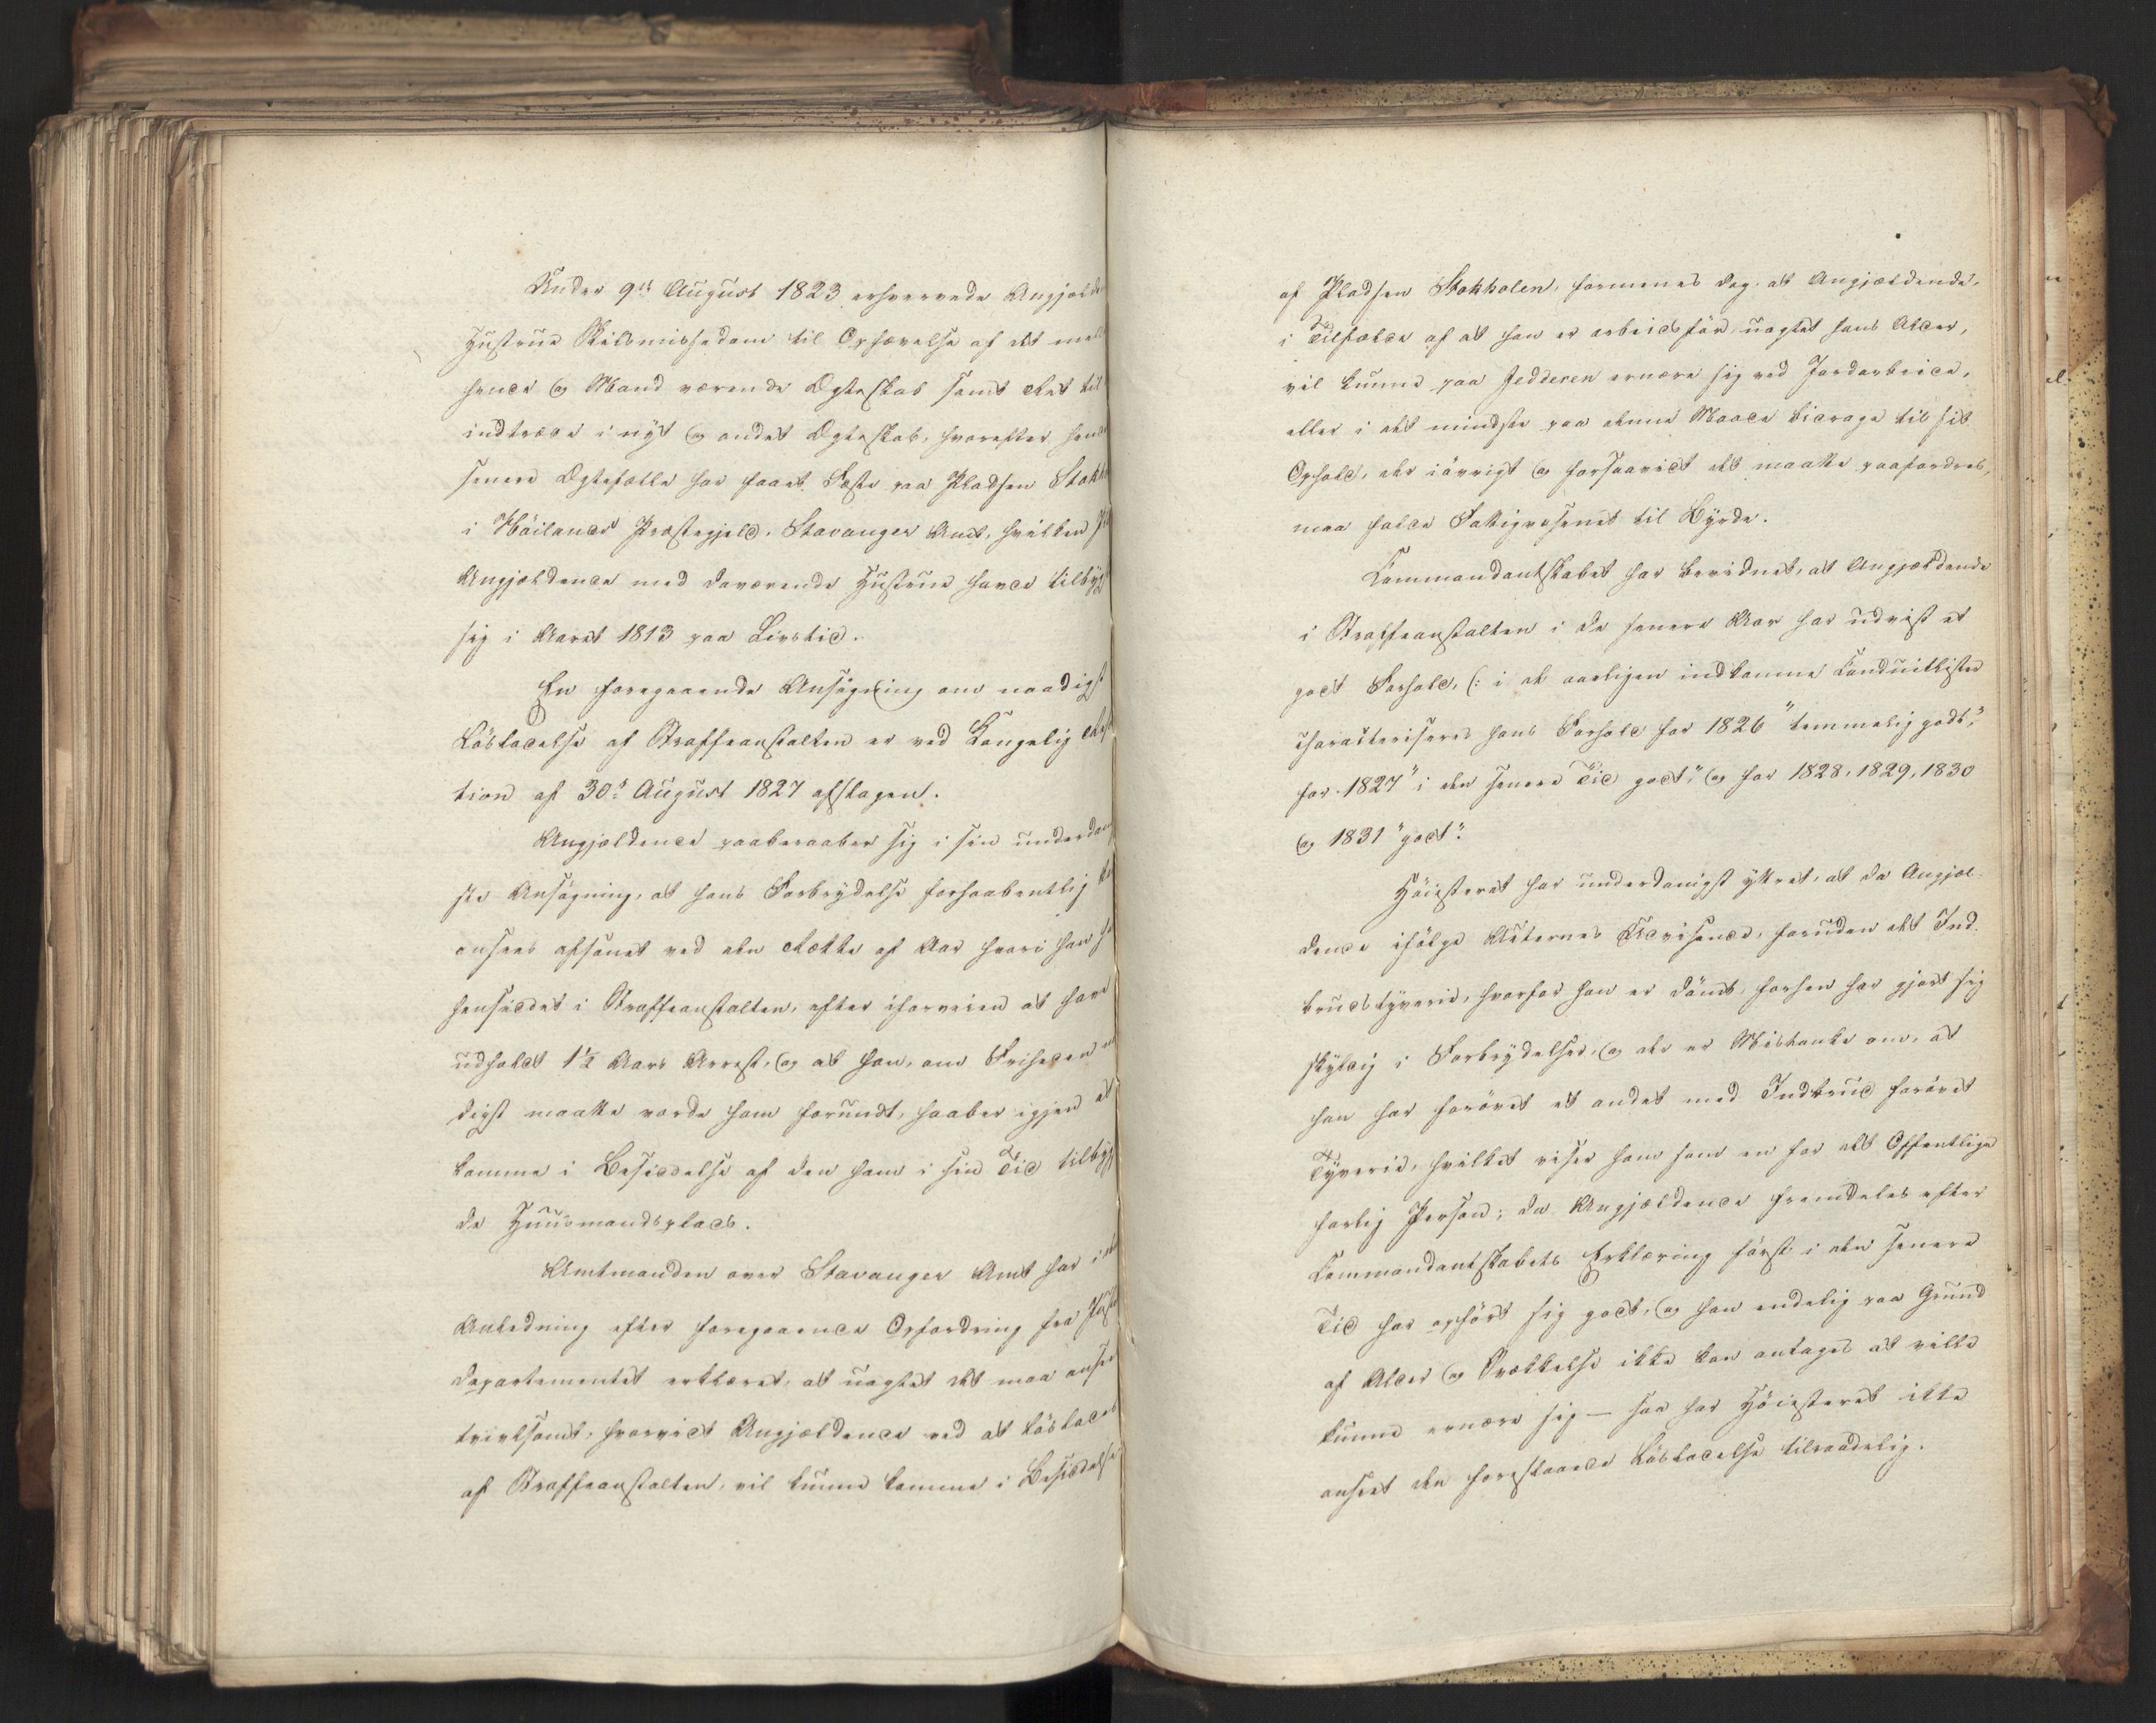 Under 9de August 1823 erhvervede Angjælden
Hustrue Skilsmissedom til Ophævelse af det mel
hende og Mand værende Ægteskab samt Ret til
indtræde i nyt og andet Ægteskab, hvorefter hen
senere Ægtefælle har faaet Fæste paa Pladsen Stokh
i Höilands Præstegjeld, Stavanger Amt, hvilken Pl
Angjeldende med daværende Hustrue havde tilbyg
sig i Aaret 1813 paa Livstid.
En foregaaende Ansögning om naadigst
Lösladelse af Straffeanstalten er ved Kongelig Reso
tion af 30te August 1827 afslagen.
Angjeldende paaberaaber sig i sin underdan
ste Ansögning, at hans Forbrydelse forhaabentlig
ansees afsonet ved den Række af Aar hvori han ha
hensiddet i Straffeanstalten, efter iforveien at have
udholdt 1½ Aars Arrest, og at han, om Friheden
digst maatte vorde ham forundt, haaber igjen at
komme i Besiddelse af den ham i sin Tid tilbyg
de Huusmandsplads.
Amtmanden over Stavanger Amt har i
Anledning efter foregaaende Opfordring fra Justits
departementet erklæret, at uagtet det maa ansee
tvivlsomt, hvorvidt Angjældende ved at löslades
af Straffeanstalten, vil kunne komme i Besiddelse
af Pladsen Stokholen, formenes dog, at Angjældende,
i Tilfælde af at han er arbeidsför uagtet hans Alder,
vil kunne paa Jedderen ernære sig ved Jordarbeide,
eller i det mindste paa denne Maade bidrage til sit
Ophold, der iövrigt og forsaavidt det maatte paafordres,
maa falde Fattigvæsenet til Byrde.
Commandantskabet har bevidnet, at Angjældende
i Straffeanstalten i de senere Aar har udvist et
godt Forhold, (: i de aarligen indkomne Conduitlister
characteriseres hans Forhold for 1826 "temmelig godt",
for 1827 "i den senere Tid godt", og for 1828, 1829, 1830
og 1831 "godt".
Höiesteret har underdanigst yttret, at da Angjæl-
dende ifölge Acternes Udvisende, foruden det Ind-
brudstyverie, hvorfor han er dömt, forhen har gjort sig
skyldig i Forbrydelser, og der er Mistanke om, at
han har forövet et andet med Indbrud forövet
Tyverie, hvilket viser ham som en for det Offentlige
farlig Person; da Angjældende fremdeles efter
Commandantskabets Erklæring först i den senere
Tid har opfört sig godt, og han endelig paa Grund
af Alder og Svækkelse ikke kan antages at ville
kunne ernære sig — saa har Höiesteret ikke
anseet den forestaaede Lösladelse tilraadelig.